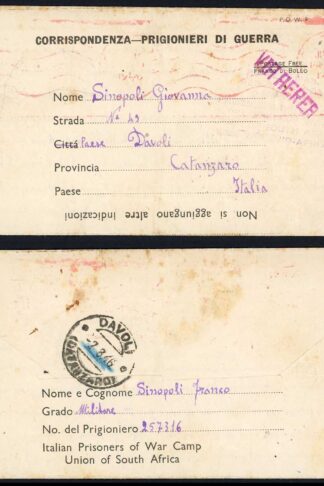 P.O.W.
CORRISPONDENZA—PRIGIONIERI DI GUERRA
POSTAGE FREE
FRANCO DI BOLLO
Nome Sinopoli Giovanna
Strada Nº 49
Città Paese Davoli
Provincia Catanzaro
Paese Italia
Non si aggiungano altre indicazioni
DAVOLI
2.8.46
(CATANZARO)
Nome e Cognome Sinopoli Franco
Grado Militare
No. del Prigioniero 257316
Italian Prisoners of War Camp
Union of South Africa